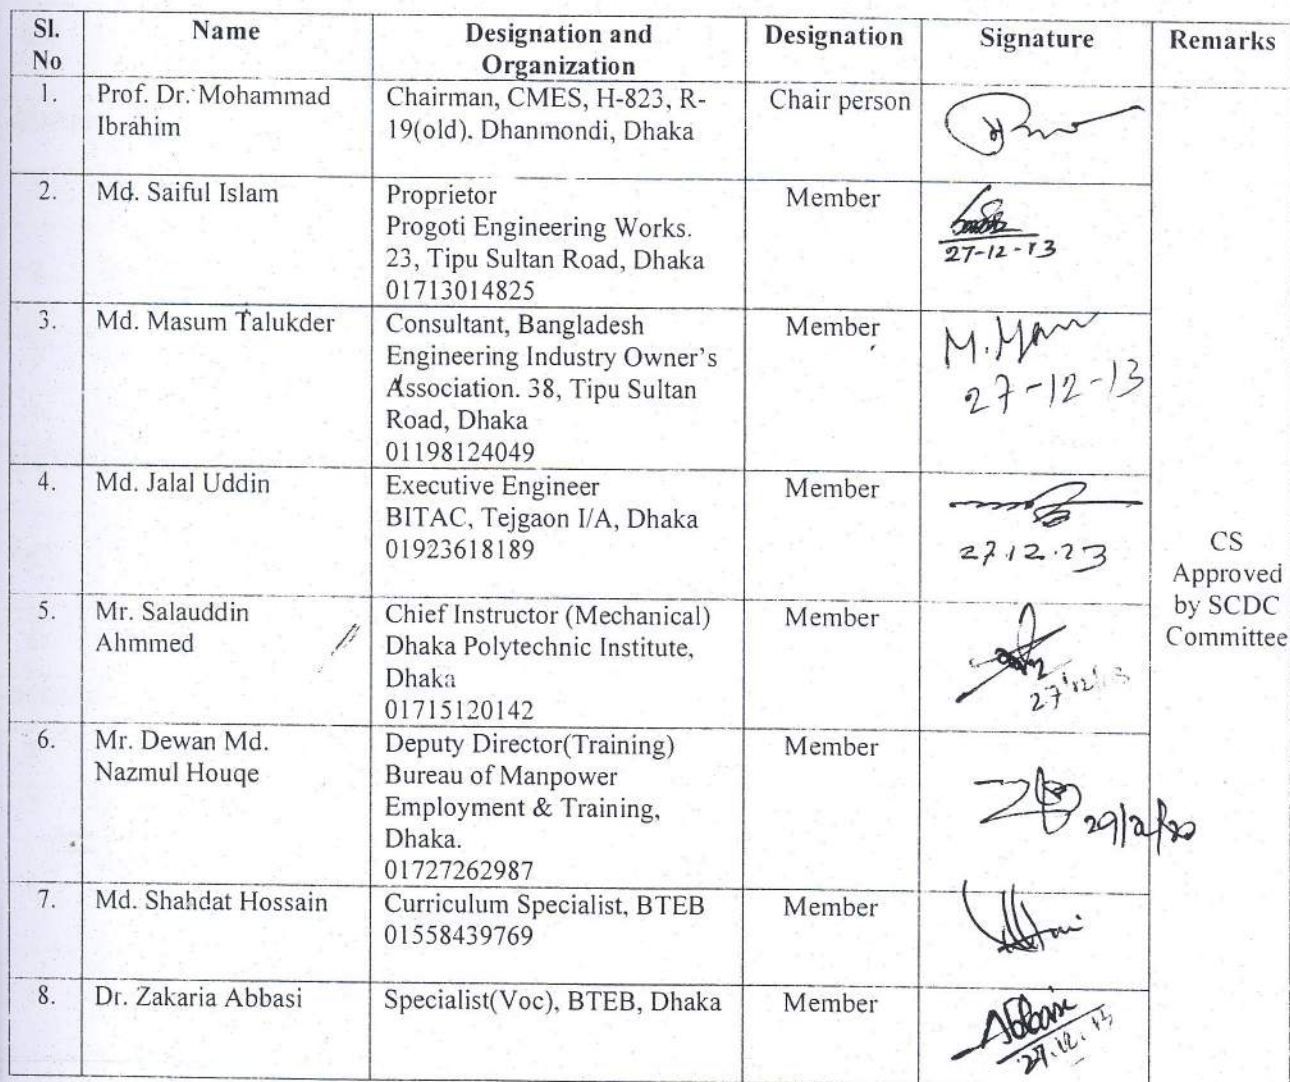 Sl. No
Name
Designation and Organization
Designation
Signature
Remarks
1.
Prof. Dr. Mohammad
Ibrahim
Chairman, CMES, H-823, R-
19(old). Dhanmondi, Dhaka
Chair person
2.
Md. Saiful Islam
Proprietor
Progoti Engineering Works.
23, Tipu Sultan Road, Dhaka
01713014825
Member
27-12-13
3.
Md. Masum Talukder
Consultant, Bangladesh
Engineering Industry Owner's
Association. 38, Tipu Sultan
Road, Dhaka
01198124049
Member
27-12-13
4.
Md. Jalal Uddin
Executive Engineer
BITAC, Tejgaon I/A, Dhaka
01923618189
Member
27.12.23
5.
Mr. Salauddin
Ahmmed
Chief Instructor (Mechanical)
Dhaka Polytechnic Institute,
Dhaka
01715120142
Member
6.
Mr. Dewan Md.
Nazmul Houqe
Deputy Director(Training)
Bureau of Manpower
Employment & Training,
Dhaka.
01727262987
Member
7.
Md. Shahdat Hossain
Curriculum Specialist, BTEB
01558439769
Member
8.
Dr. Zakaria Abbasi
Specialist(Voc), BTEB, Dhaka
Member
Abbasi
27.12.13
CS
Approved
by SCDC
Committee